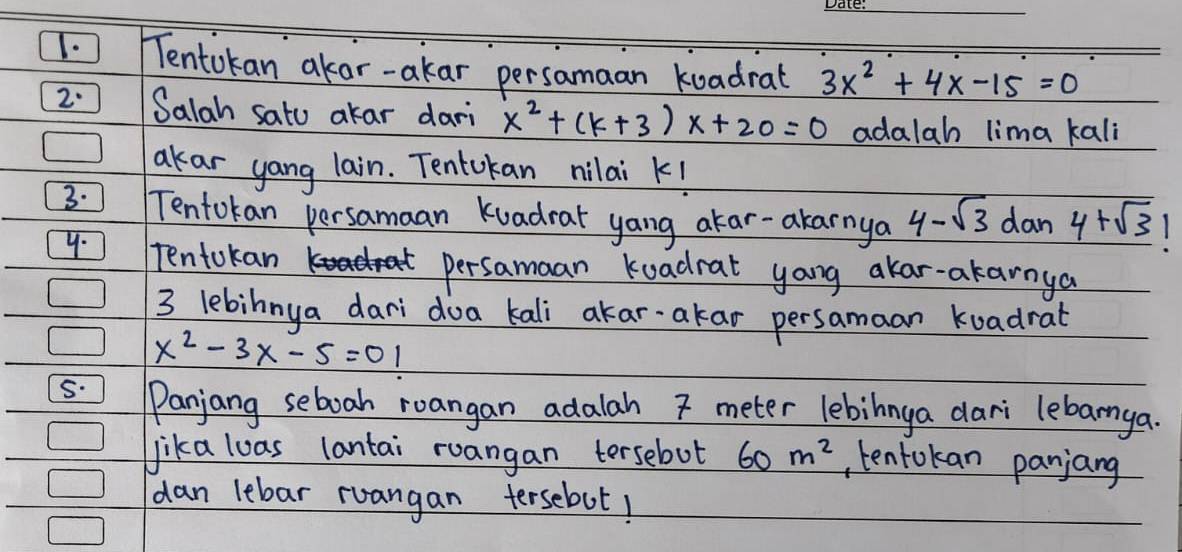 Date:
1. Tentukan akar-akar persamaan kuadrat 3x² + 4x - 15 = 0
2. Salah satu akar dari x² + (k+3) x + 20 = 0 adalah lima kali
akar yang lain. Tentukan nilai k!
3. Tentukan persamaan kuadrat yang akar-akarnya 4-√3 dan 4+√3!
4. Tentukan kuadrat persamaan kuadrat yang akar-akarnya
3 lebihnya dari dua kali akar-akar persamaan kuadrat
x² - 3x - 5 = 0!
5. Panjang sebuah ruangan adalah 7 meter lebihnya dari lebarnya.
Jika luas lantai ruangan tersebut 60 m², tentukan panjang
dan lebar ruangan tersebut!